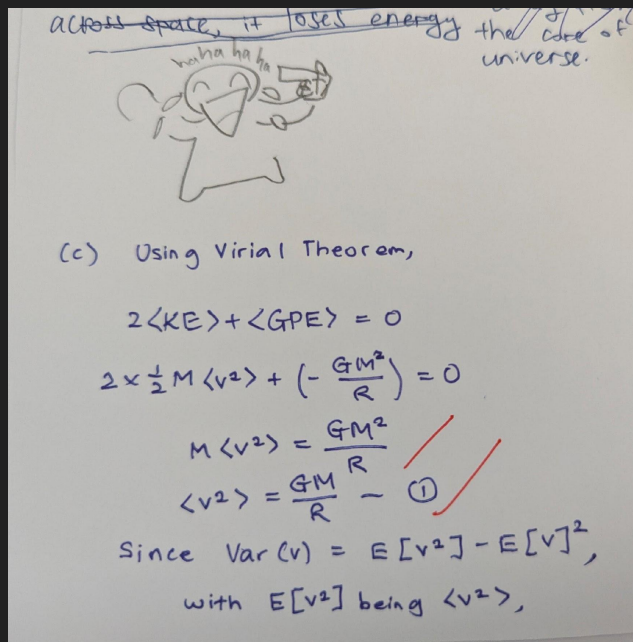 across space, it loses energy
the core of
universe.
haha ha ha
(c) Using Virial Theorem,
2<KE> + <GPE> = 0
2 × ½ M <v²> + (- GM²/R) = 0
M <v²> = GM²/R
<v²> = GM/R — ①
Since Var (v) = E [v²] - E [v]²,
with E[v²] being <v²>,